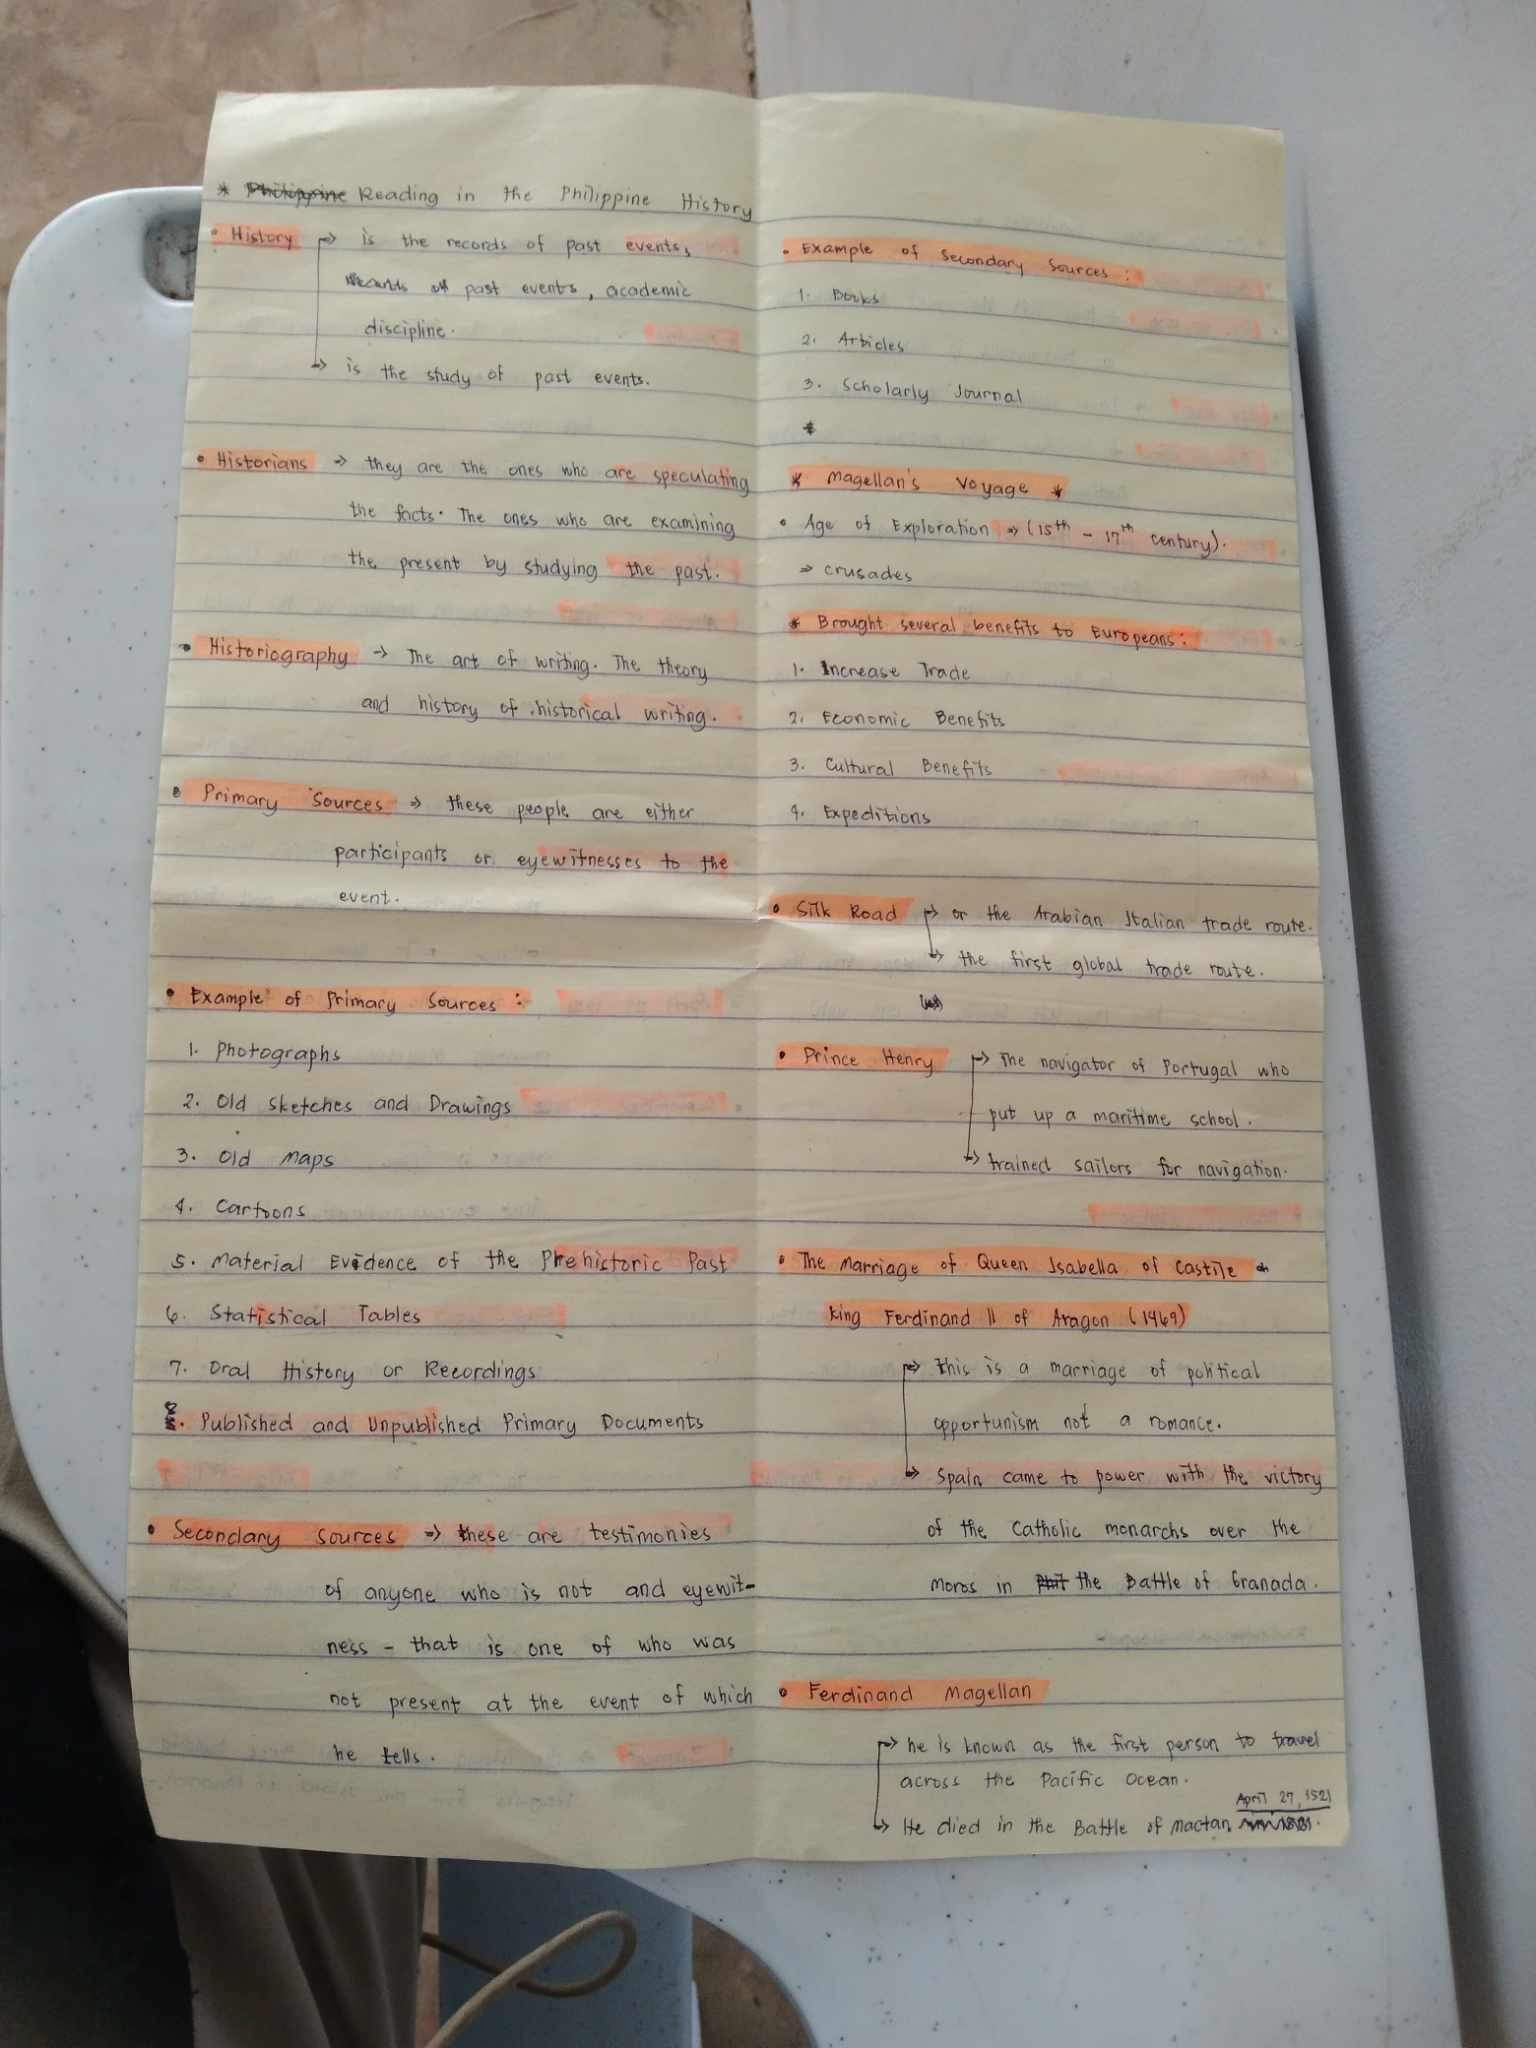 * Reading in the Philippine History
• History → is the records of past events,
records of past events, academic
discipline.
→ is the study of past events.
• Historians → they are the ones who are speculating
the facts. The ones who are examining
the present by studying the past.
• Historiography → The art of writing. The theory
and history of historical writing.
• Primary Sources → these people are either
participants or eyewitnesses to the
event.
• Example of Primary Sources :
1. Photographs
2. Old Sketches and Drawings
3. Old Maps
4. Cartoons
5. Material Evidence of the Prehistoric Past
6. Statistical Tables
7. Oral History or Recordings
8. Published and Unpublished Primary Documents
• Secondary Sources → these are testimonies
of anyone who is not and eyewit-
ness - that is one of who was
not present at the event of which
he tells.
• Example of Secondary Sources :
1. Books
2. Articles
3. Scholarly Journal
*
* Magellan's Voyage *
• Age of Exploration → (15th - 17th century).
→ crusades
* Brought several benefits to Europeans:
1. Increase Trade
2. Economic Benefits
3. Cultural Benefits
4. Expeditions
• Silk Road → or the Arabian Italian trade route.
→ the first global trade route.
• Prince Henry → The navigator of Portugal who
put up a maritime school.
→ trained sailors for navigation.
• The Marriage of Queen Isabella of Castile
King Ferdinand II of Aragon (1469)
→ This is a marriage of political
opportunism not a romance.
→ Spain came to power with the victory
of the Catholic monarchs over the
moros in the Battle of Granada.
• Ferdinand Magellan
→ he is known as the first person to travel
across the Pacific Ocean.
April 27, 1521
→ He died in the Battle of Mactan